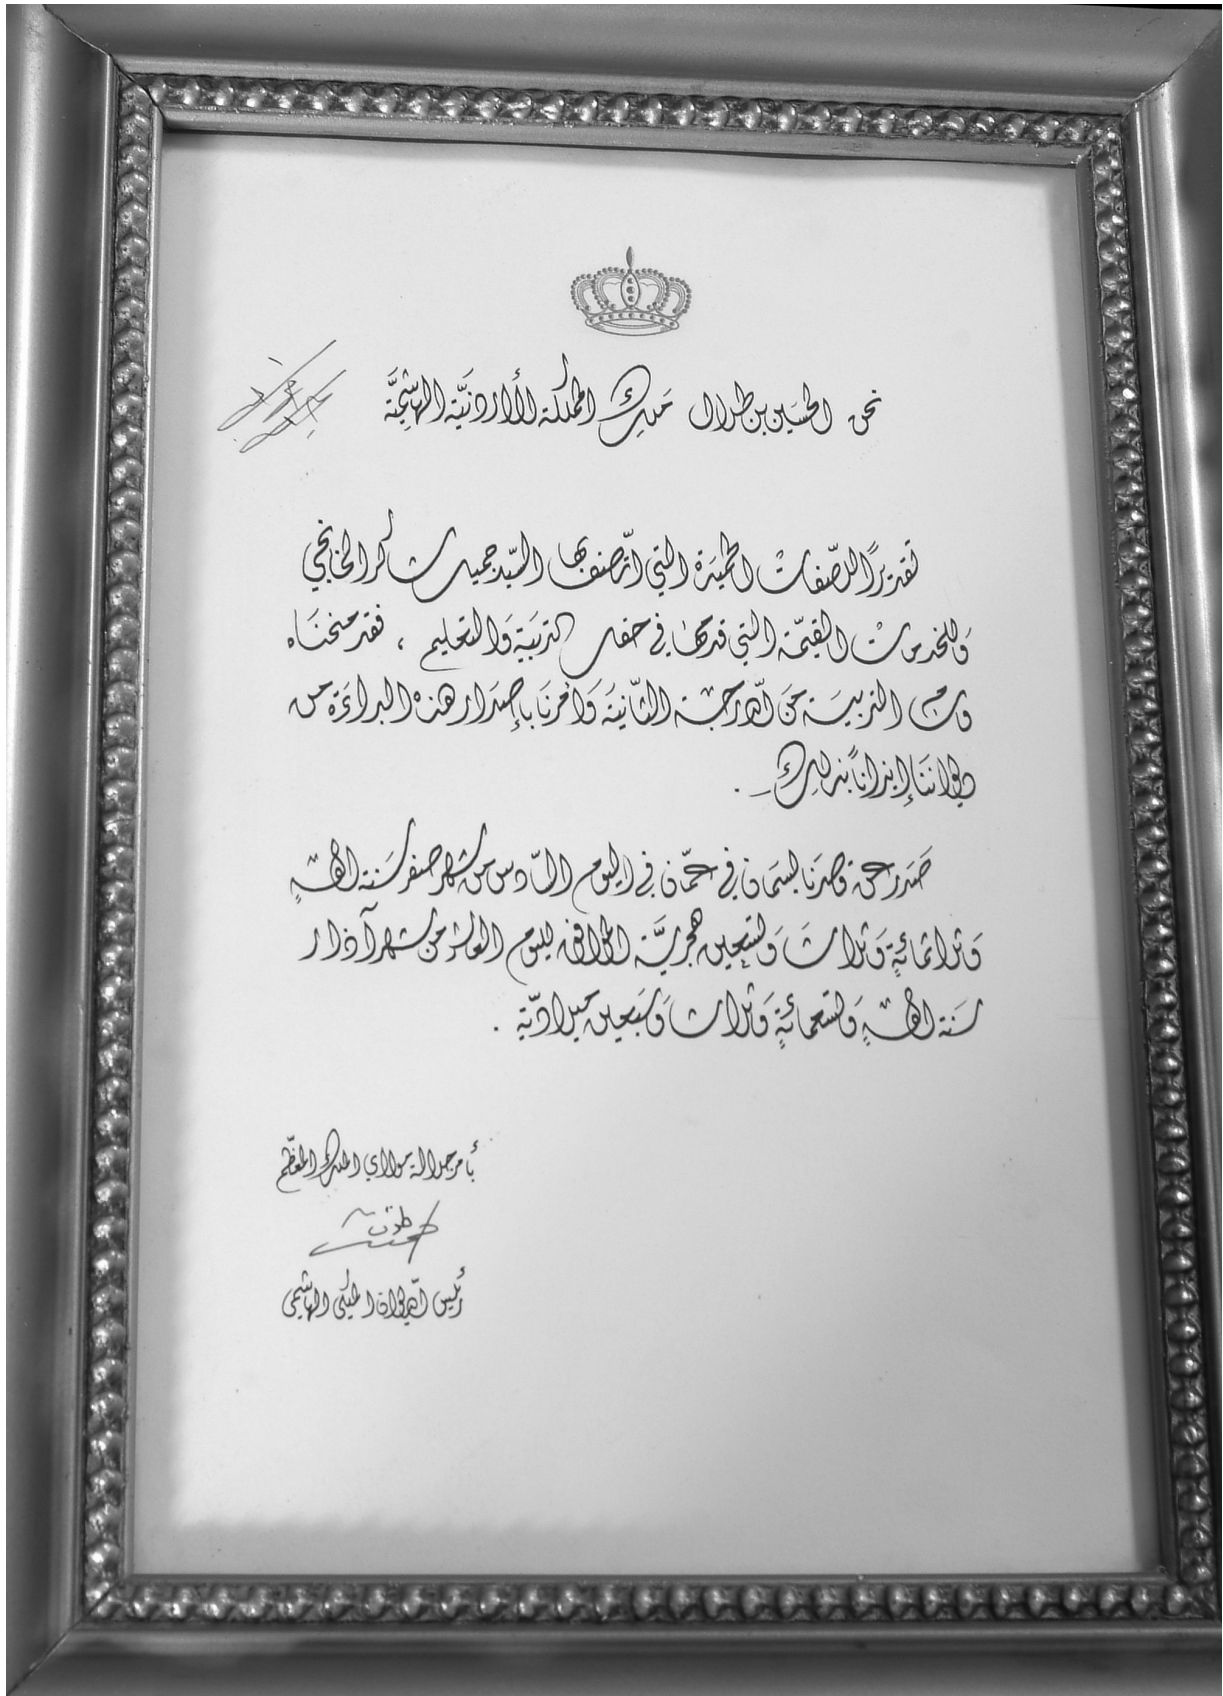 نحن الحسين بن طلال ملك المملكة الأردنيَّة الهاشميَّة
تقديرًا للصّفات الحميدة التي اتّصف بها السيّد جميل شاكر الخانجي
وَللخدمات القيّمة التي قدمها في حقل التربيَة وَالتعليم ، فقد منحنَاه
وسام التربيَة مَن الدّرجَة الثّانيَة وَأمرنَا بإصدَار هذه البراءَة من
ديواننَا إيذاناً بذلك .
صَدر عن قصرنَا بسمَان في عمّان في اليوم السّادس من شهر صفر سَنة الفٍ
وَثلاثمائةٍ وَثلاث وَتسعين هجريَّة الموافق لليوم العاشر من شهر آذار
سَنة الفٍ وَتسعمائةٍ وَثلاث وَسَبعين ميلاديّة .
بأمر جلالة مولاي الملك المعظّم
رئيس الدّيوان الملكي الهاشمي